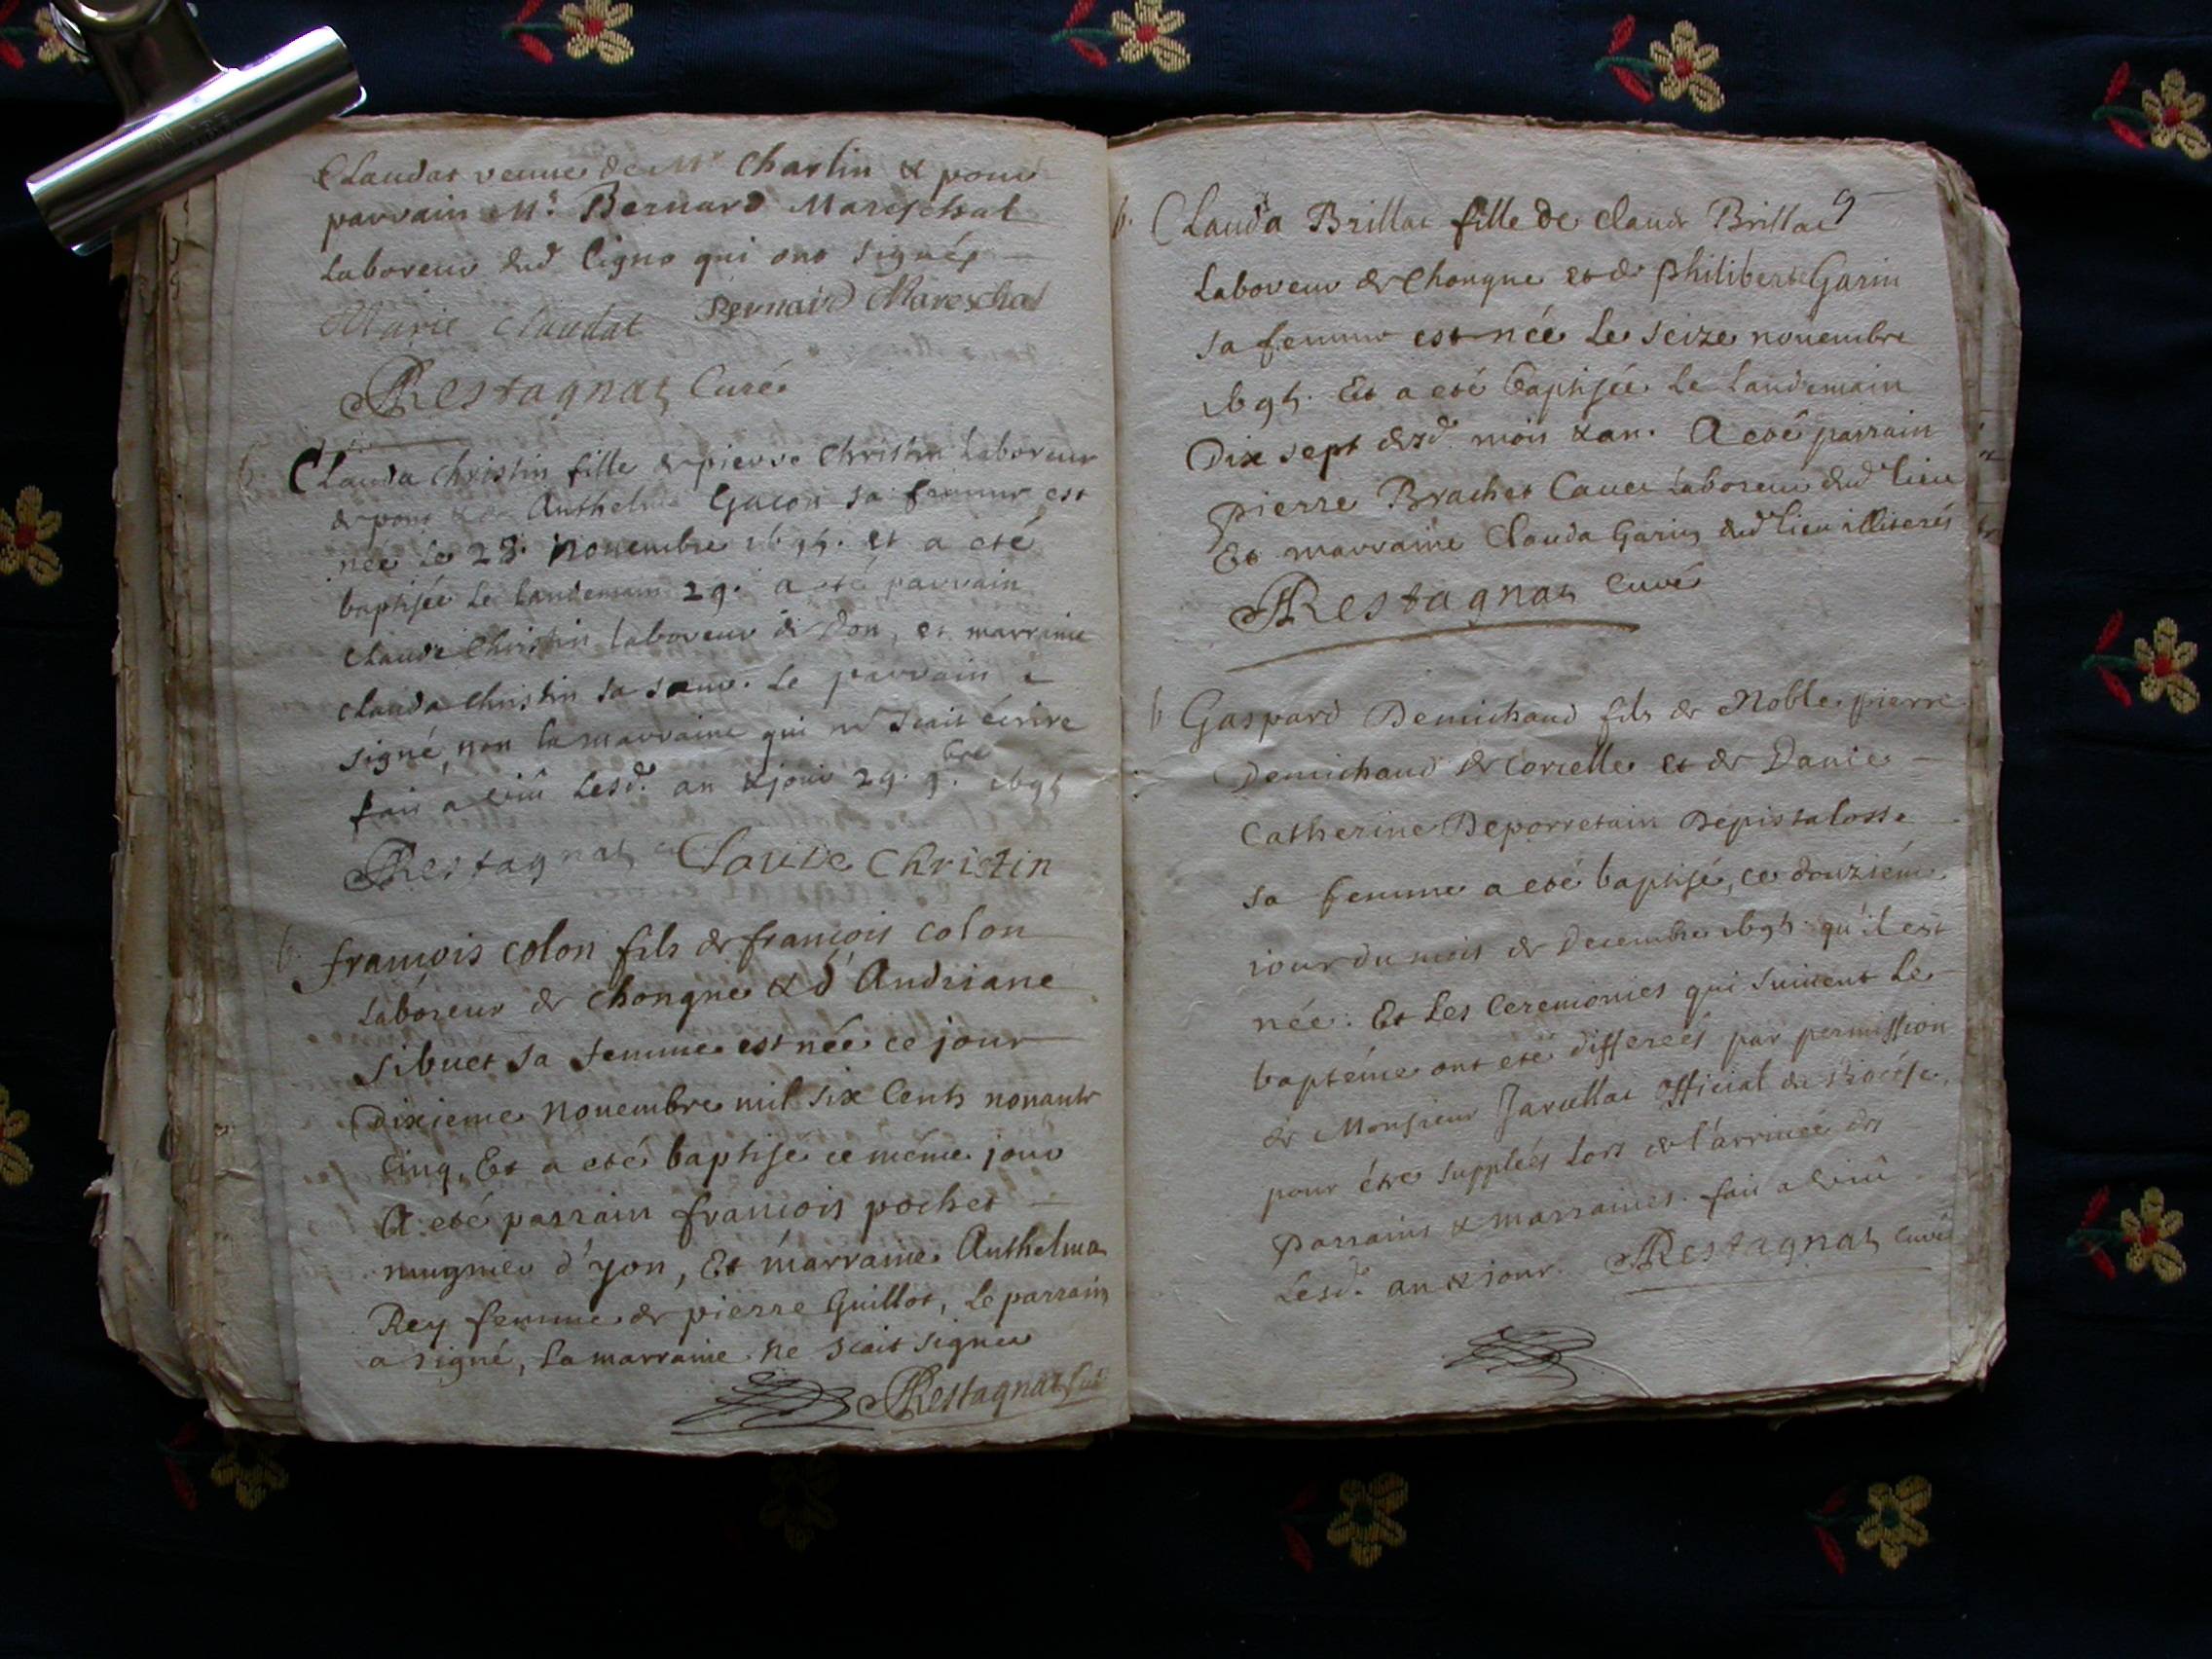 Claudat veuue de Mr Charlin & pour
parrain Mr. Bernard Mareschal
Laboreur dud Ligno qui ont signés
Marie Claudat Bernard Mareschal
Restagnat Curé
b. Clauda Christin fille de pierre Christin Laboreur
de pont & de Anthelme Gucon sa femme est
née Le 28. Nouembre 1695. et a eté
baptisée Le Landemain 29. a eté parrain
Claude Christin laboreur de Don, et marraine
Clauda Christin sa sœur. Le parrain a
signé, non la marraine qui ne scait écrire
fait a Lesd. an & jour 29. 9.bre 1695
Restagnat Claude Christin
b. francois Colon fils de francois Colon
Laboreur de Chongne & d'Andriane
Sibuet sa femme est née ce jour
Dixieme Nouembre mil six Cents nonante
Cinq, Et a eté baptisé ce même jour
A eté parrain francois pochet
mugnier d'yon, Et marraine Anthelma
Rey femme de pierre Guillot, Le parrain
a signé, La marraine ne scait signer
Restagnat Curé
9
b. Clauda Brillat fille de Claude Brillat
Laboreur de Chongne et de philiberte Garin
sa femme est née Le seize nouembre
1695. Et a eté baptisée Le Landemain
Dix sept desd. mois & an. A eté parrain
pierre Brachet Laboreur dud Lieu
Et marraine Clauda Garin dud Lieu illiterés
Restagnat Curé
b Gaspard Demichaud fils de Noble pierre
Demichaud de Corcelle et de Dame
Catherine Deporretain
sa femme a eté baptisé, ce douziéme
jour du mois de Decembre 1695. qu'il est
née. Et Les Ceremonies qui suiuent Le
baptéme ont eté differeés par permission
de Monsieur Jarcellat Official du diocése,
pour étre suppleés Lors de l'arriueé des
Parrains & marraines. fait a
Lesd. an & jour. Restagnat Curé